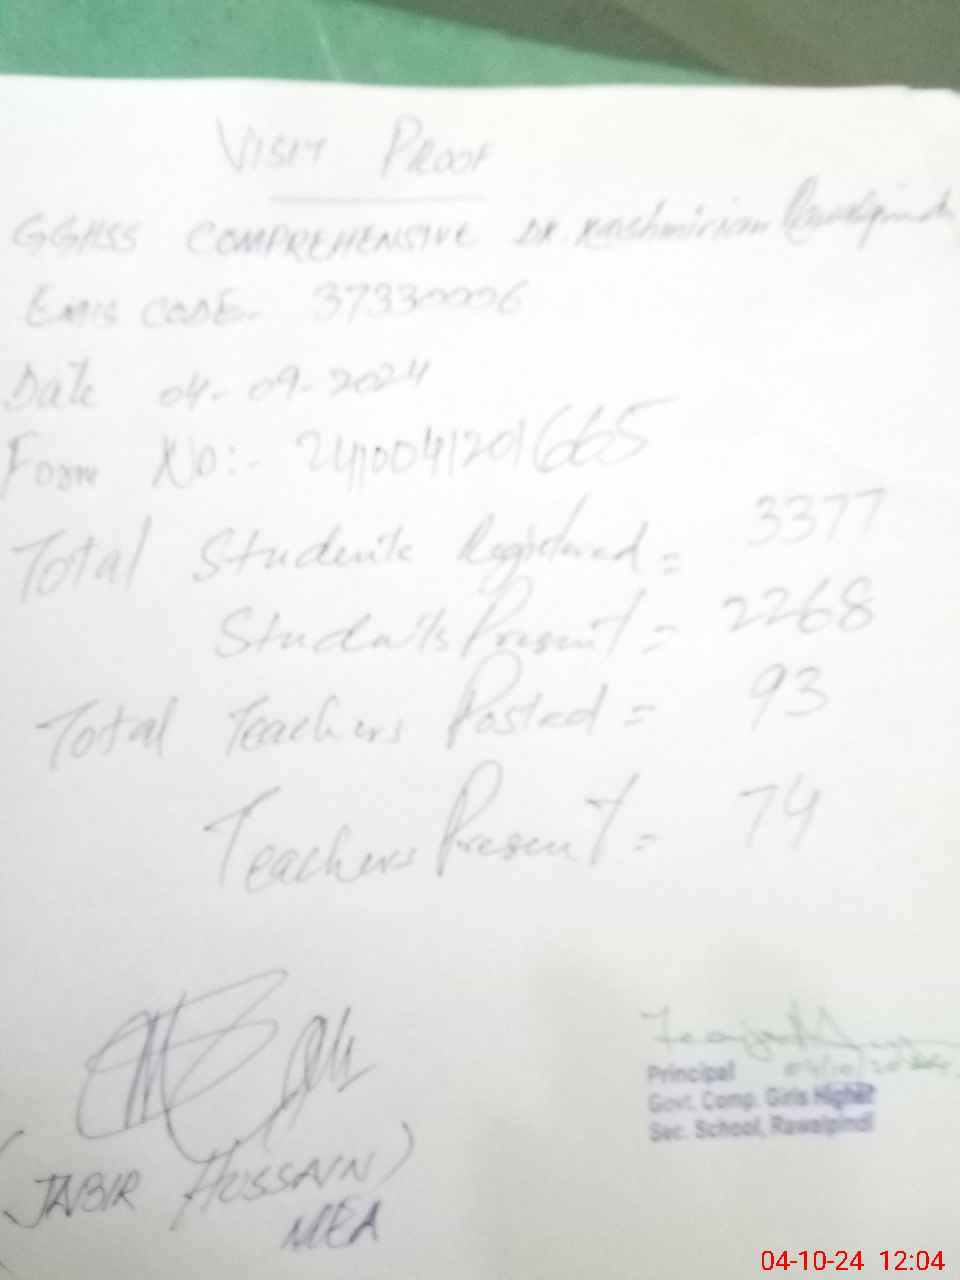 VISIT PROOF
GGHSS COMPREHENSIVE DK. Kashmirian Rawalpindi
EMIS CODE- 37330006
Date 04-09-2024
Form No:- 2410041201665
Total Students Registered = 3377
Students Present = 2268
Total Teachers Posted = 93
Teachers Present = 74
04/10/2024
Principal
Govt. Comp. Girls Higher
Sec. School, Rawalpindi
(JABIR HUSSAIN)
MEA
04-10-24 12:04